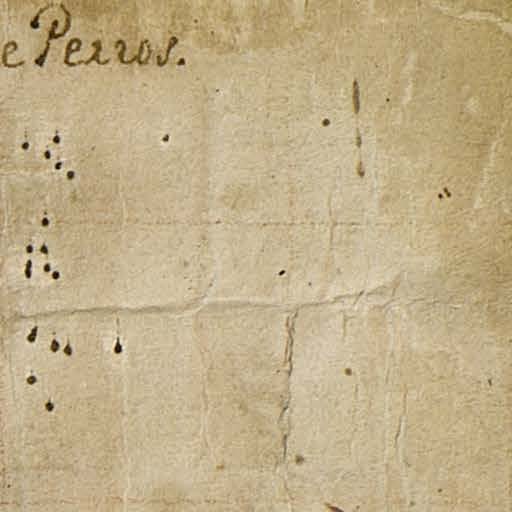 e Perros.